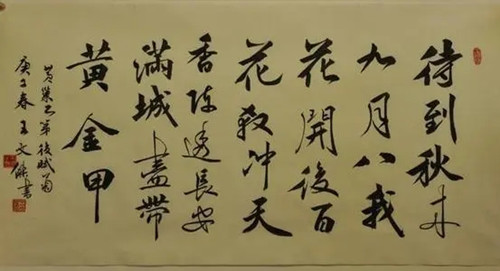 待到秋来
九月八我
花開後百
花殺冲天
香陣透長安
滿城盡帶
黄金甲
黄巢不第後賦菊
庚子春王文書